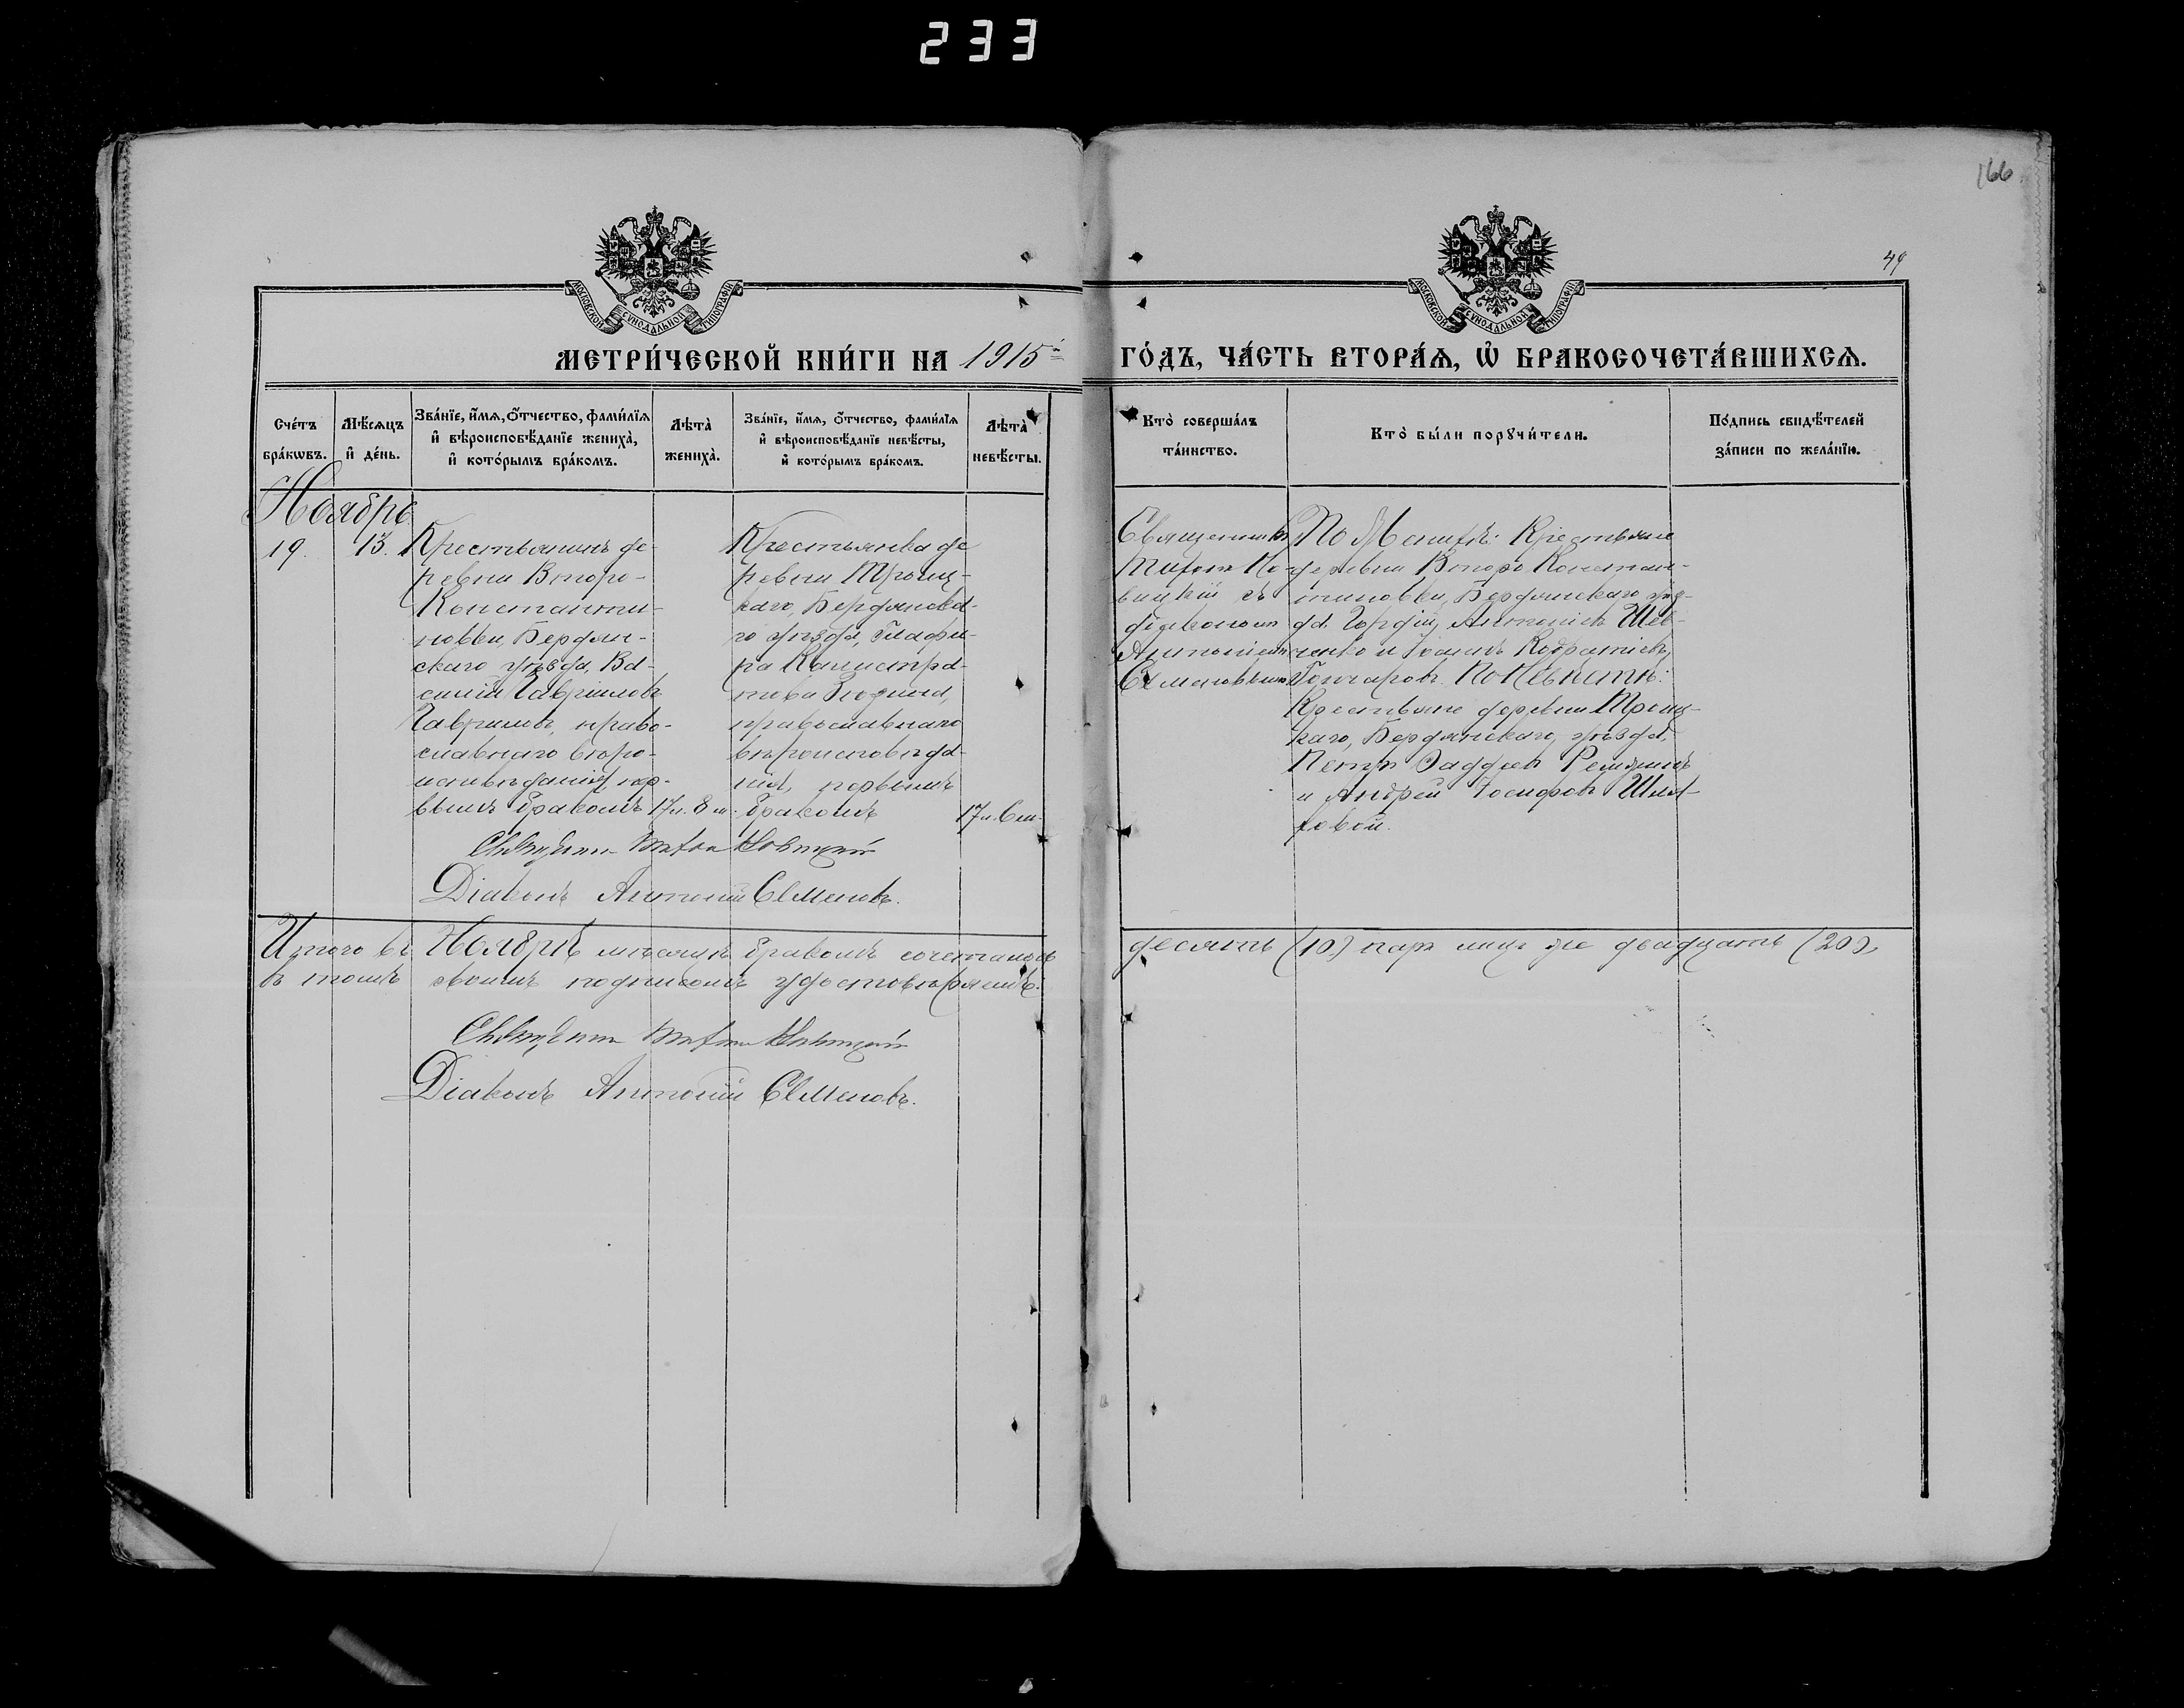 233
166
49
МОСКОВСКОЙ СѴНОДАЛЬНОЙ ТИПОГРАФІИ
МОСКОВСКОЙ СѴНОДАЛЬНОЙ ТИПОГРАФІИ
МЕТРИ́ЧЕСКОЙ КНИ́ГИ НА 1915й
ГО́ДЪ, ЧА́СТЬ ВТОРА́Ѧ, Ѽ БРАКОСОЧЕТА́ВШИХСѦ.
Сче́тъ
бра́кѡвъ.
Мѣ́сѧцъ
и҆ де́нь.
Зва́нїе, и҆́мѧ, ѻ҆́тчество, фами́лїѧ
и҆ вѣроисповѣ́данїе жениха̀,
и҆ кото́рымъ бра́комъ.
Лѣта̀
жениха̀.
Зва́нїе, и҆́мѧ, ѻ҆́тчество, фами́лїѧ
и҆ вѣроисповѣ́данїе невѣ́сты,
и҆ кото́рымъ бра́комъ.
Лѣта̀
невѣ́сты.
Кто̀ соверша́лъ
та́инство.
Кто̀ бы́ли порꙋчи́тели.
По́дпись свидѣ́телей
за́писи по жела́нїю.
Ноябрь
19.
13.
Крестьянинъ де-
ревни Второ-
Константи-
новки, Бердян-
скаго уѣзда, Ва-
силій Гавріиловъ
Гавриловъ, право-
славнаго вѣро-
исповѣданія, пер-
вымъ бракомъ
17 л. 8 м.
Крестьянка де
ревни Троиц-
каго, Бердянска-
го уѣзда, Глафи-
ра Калистра-
това
православнаго
вѣроисповѣда-
нія, первымъ
бракомъ
17 л. 6 м.
Священникъ
Тифонъ Но-
вицкій съ
діакономъ
Антоніемъ
Семеновымъ
По Женихѣ: Крестьяне
деревни Второ Констан-
тиновки, Бердянскаго уѣз-
да, Гордій Антоніевъ Шев-
ченко и Іоаннъ Кодратіевъ
Гончаровъ. По Невѣстѣ:
Крестьяне деревни Троиц-
каго, Бердянскаго, уѣзда,
Петръ Фаддеевъ
и Андрей Іосифовъ
Священникъ Тифонъ Новицкій
Діаконъ Антоній Семеновъ.
Итого въ Ноябрѣ мѣсяцѣ бракомъ сочеталось
десять (10) паръ лицъ же двадцать (20),
въ томъ своимъ подписомъ удостовѣряемъ:
Священникъ Тифонъ Новицкій
Діаконъ Антоній Семеновъ.